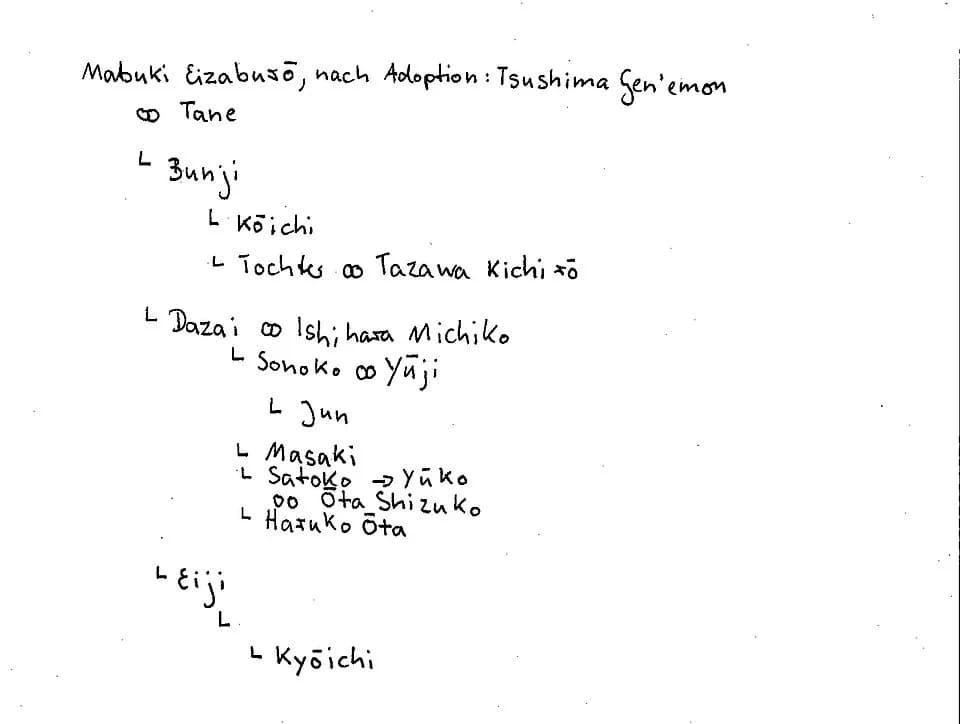 Mabuki Eizaburō, nach Adoption: Tsushima Gen'emon
∞ Tane
└ Bunji
└ Kōichi
└ Tochter ∞ Tazawa Kichirō
└ Dazai ∞ Ishihara Michiko
└ Sonoko ∞ Yūji
└ Jun
└ Masaki
└ Satoko → Yūko
∞ Ōta Shizuko
└ Haruko Ōta
└ Eiji
└
└ Kyōichi